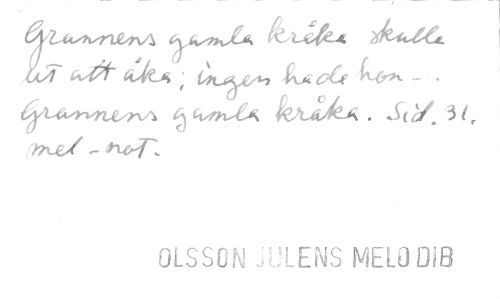 Grannens gamla kråka skulle
ut att åka; ingen hade hon -..
Grannens gamla kråka. Sid. 31.
mel-not.
OLSSON JULENS MELODIB